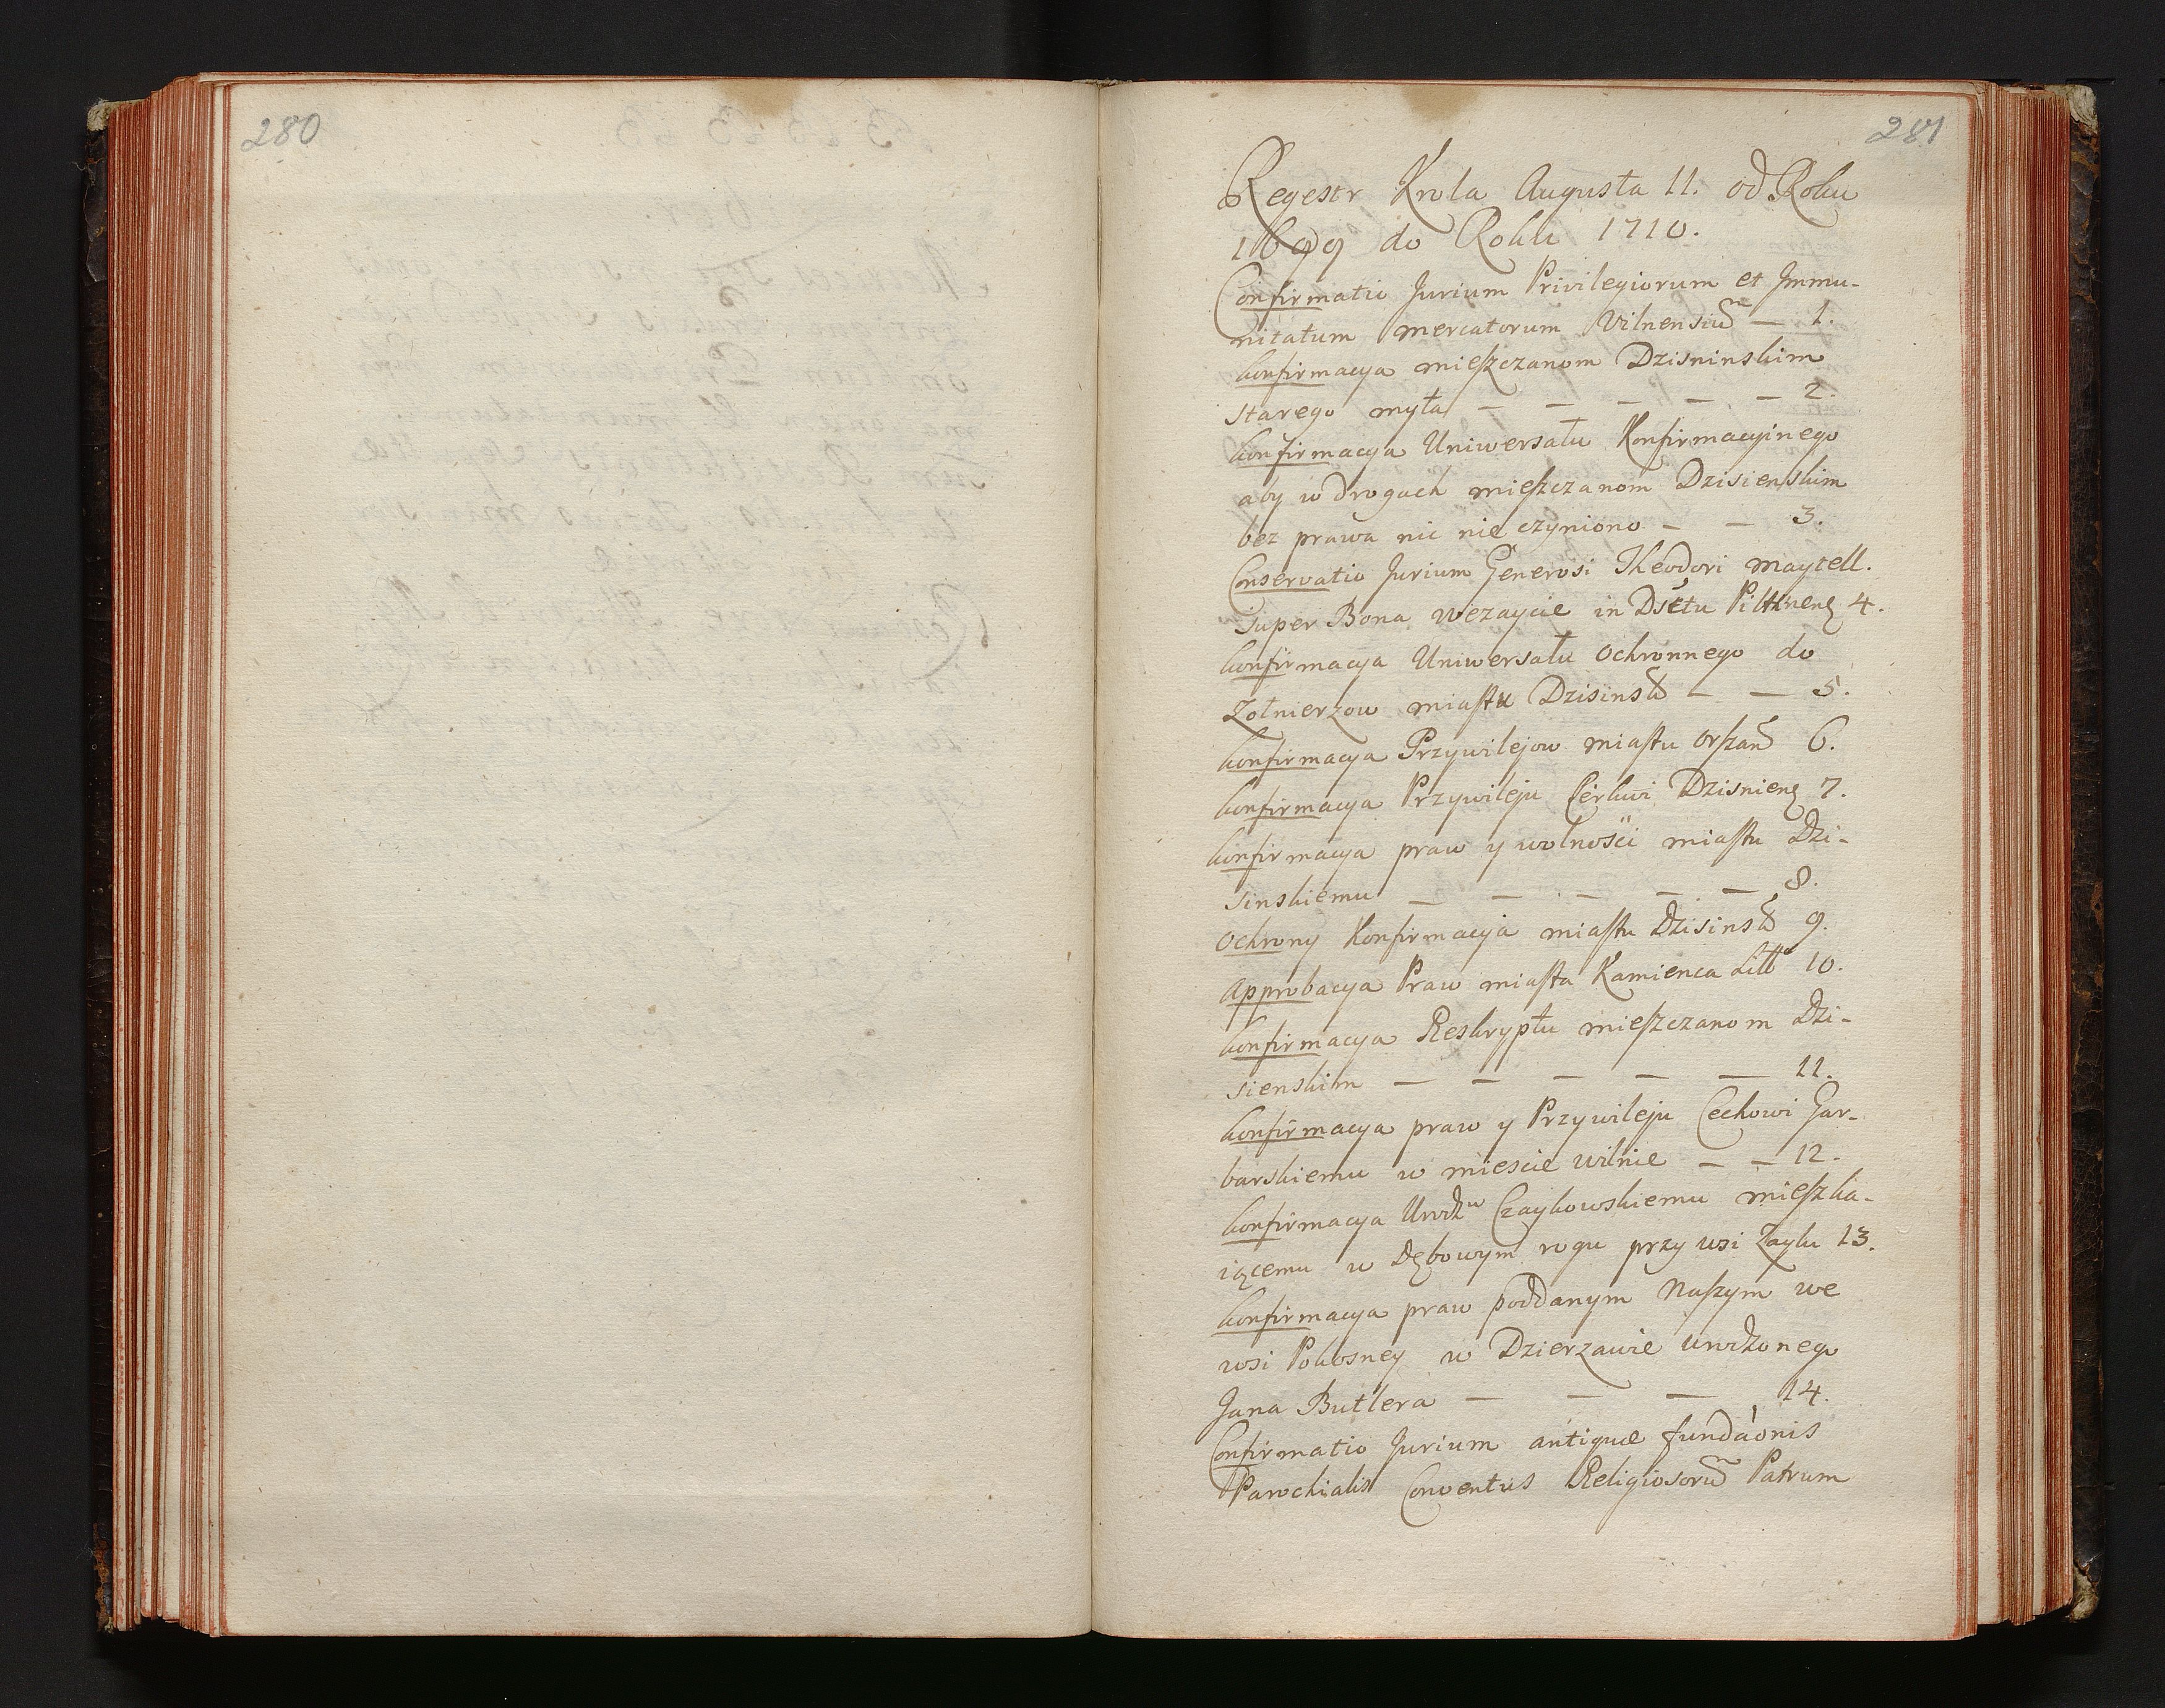 280
281
Regestr Krola Augusta II. od Roku
1699 do Roku 1710.
Confirmatio Jurium Privilegiorum et Immu-
nitatum mercatorum Vilnensiu͠ — 1.
konfirmacya mieszczanom Dzisninskim
starego myta — — — — — 2.
konfirmacya Uniwersału Konfirmacyinego
aby w drogach mieszczanom Dzisienskim
bez prawa nic nie czyniono — — 3.
Conservatio Jurium Generosi Theodori maytell.
super Bona wezaycie in 4.
konfirmacya Uniwersału ochronnego do
Zołnierzow miastu Dzisins — — 5.
konfirmacya Przywilejow miastu orszan 6.
konfirmacya Przywileju Cerkwi Dzisnień 7.
konfirmacya praw y wolnosci miastu Dzi-
sinskiemu — — — — — 8.
ochrony Konfirmacyia miastu Dzisins 9.
approbacya Praw miasta Kamienca Litt 10.
konfirmacya Reskryptu mieszczanom Dzi-
sienskim — — — — — 11.
konfirmacya praw y Przywileju Cechowi Gar-
barskiemu w miescie wilnie — — 12.
konfirmacya Urodzu Czaykowskiemu mieszka-
iącemu w Dębowym rogu przy wsi Zayku 13.
konfirmacya praw poddanym Naszym we
wsi Pokosney w Dzierzawie urodzonego
Jana Butlera — — — 14.
Confirmatio Jurium antiquæ fundaonis
Parochialis Conventus Religiosoru͠ Patrum